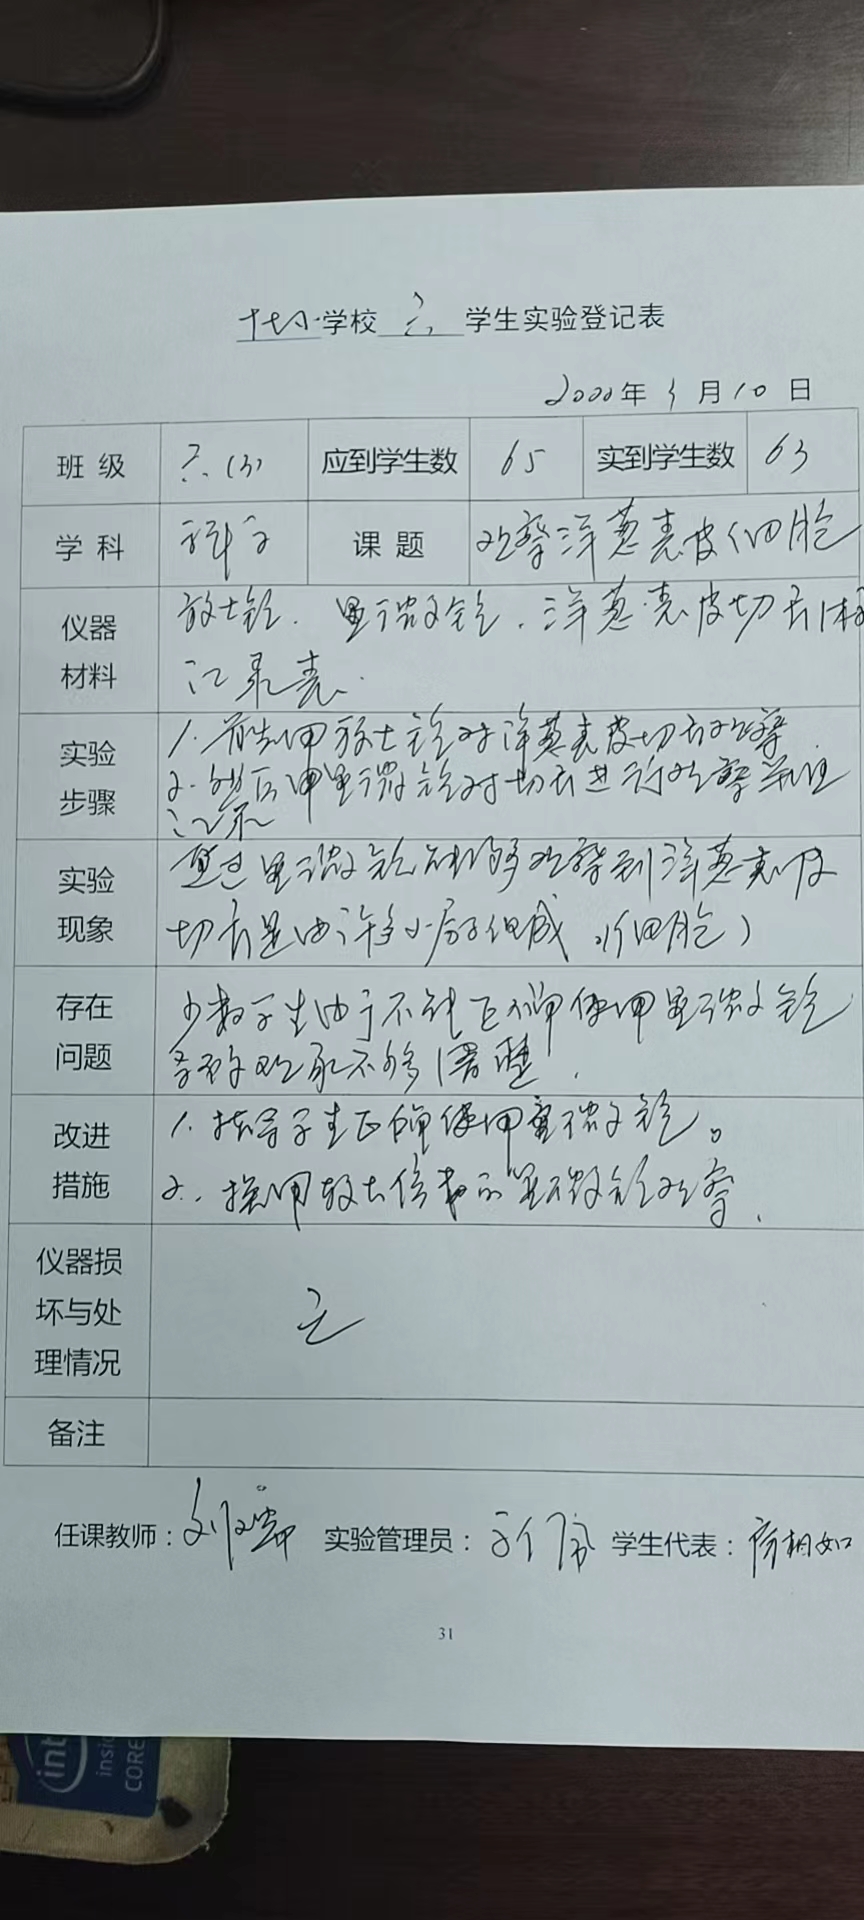 十七小学校 六 学生实验登记表
年 3 月 10 日
班级 六(3) 应到学生数 65 实到学生数 63
学科 科学 课题 观察洋葱表皮细胞
仪器材料 放大镜. 显微镜. 洋葱表皮切片标
记录表.
实验步骤 1. 首先用放大镜对洋葱表皮切片观察.
2. 然后用显微镜对切片进行观察并且
记录
实验现象 通过显微镜能够观察到洋葱表皮
切片是由许多小房子组成.(细胞)
存在问题 少数学生由于不能正确使用显微镜
导致观察不够清楚.
改进措施 1. 指导学生正确使用显微镜。
2. 换用较大倍数的显微镜观察.
仪器损坏与处理情况 无
备注
任课教师: 实验管理员: 学生代表: 相如
31
intel
inside
CORE